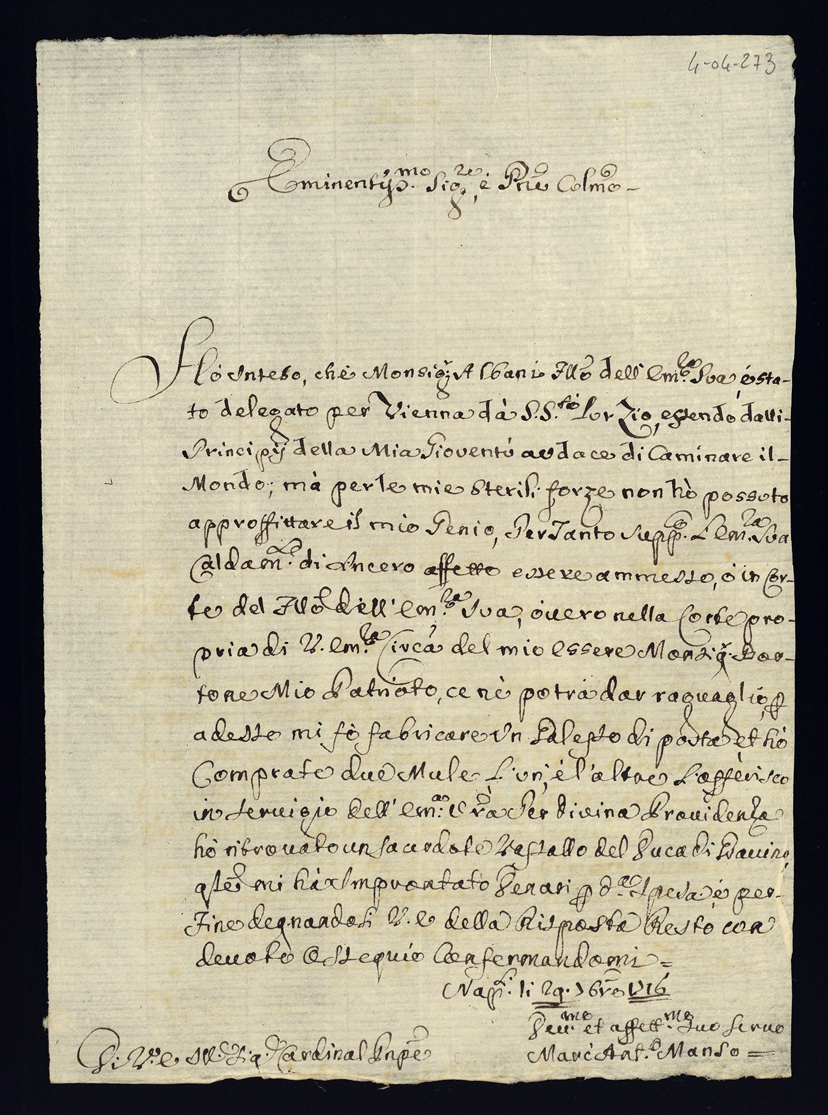 4-04-273
Eminentiss.mo Sig.re, e Pne Colmo –
Hò inteso, che Monsig.r Albani Illō dell'Em.za Sua, è sta-
to delegato per Vienna dà S. S.tà suo Zio, essendo dalli
Principij della Mia Gioventù audace di Caminare il
Mondo; mà per le mie sterili forze non hò possuto
approffittare il mio Genio, Per Tanto supp.co L'Em.za Sua
Caldam.te di sincero affetto essere ammesso, ò in Cor-
te del Illō dell'Em.za Sua, overo nella Corte pro-
pria di V. Em.za Circa del mio essere Monsig.r Bor-
tone Mio Patrioto, ce nè potrà dar raguaglio,
adesso mi fò fabricare un Galesso di posta, et hò
Comprate due Mule L'un, è l'altre L'offerisco
in servigio dell'Em.za V.ra Per divina Providenza
hò ritrovato un sacerdote Vassallo del Duca di
mi hà Improntato Denari p d.a spesa, è per
Fine degnandosi V. E. della Risposta Resto con
devoto Ossequio Confermandomi =
Nap.li li 29. 1716
Dev.mo et affett.mo suo servo
Marc'Ant.o Manso =
Di V. E. Sig.r Cardinal